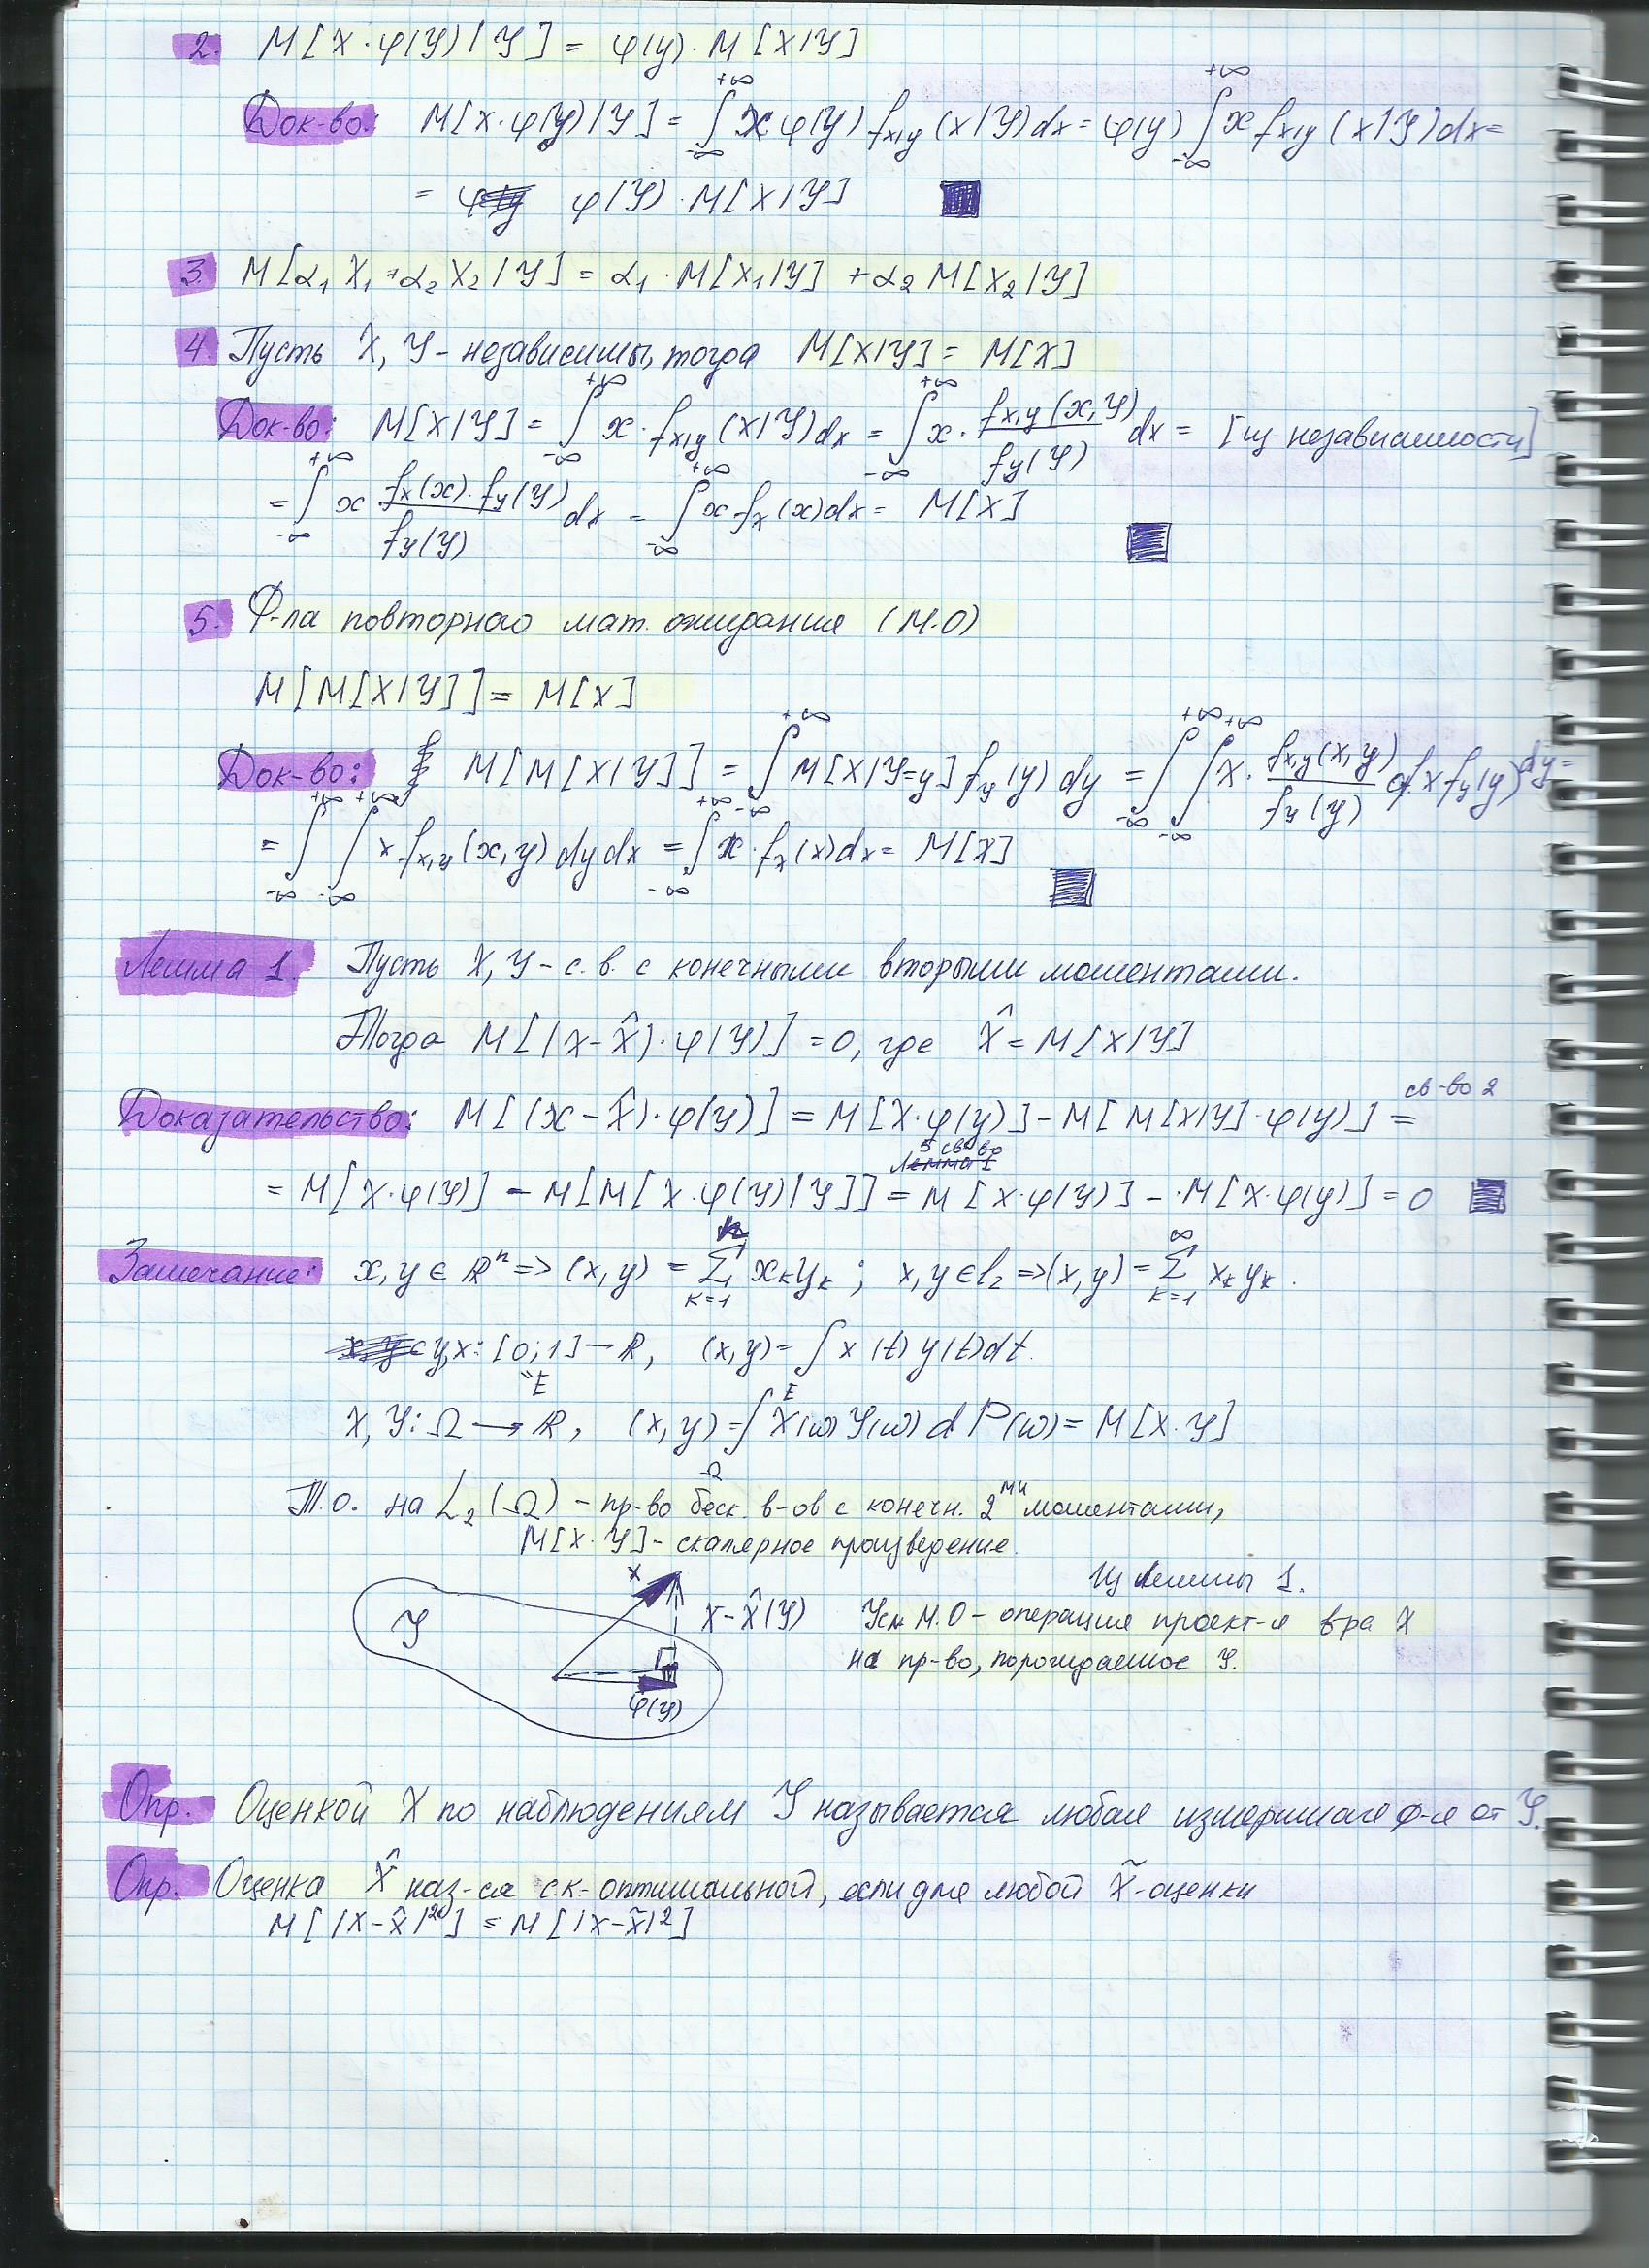 2. M[X·φ(Y)|Y] = φ(y)·M[X|Y]
Док-во: M[X·φ(Y)|Y] = ∫_{-∞}^{+∞} x φ(Y) f_{x|y}(x|Y)dx = φ(y) ∫_{-∞}^{+∞} x f_{x|y}(x|Y)dx =
= φ(Y)·M[X|Y]
3. M[α₁X₁+α₂X₂|Y] = α₁·M[X₁|Y] + α₂ M[X₂|Y]
4. Пусть X, Y – независимы, тогда M[X|Y] = M[X]
Док-во: M[X|Y] = ∫_{-∞}^{+∞} x·f_{x|y}(x|Y)dx = ∫_{-∞}^{+∞} x· f_{x,y}(x,Y)/f_y(Y) dx = [из независимости]
= ∫_{-∞}^{+∞} x f_x(x)·f_y(Y)/f_y(Y) dx = ∫_{-∞}^{+∞} x f_x(x)dx = M[X]
5. Ф-ла повторного мат. ожидания (М.О)
M[M[X|Y]] = M[X]
Док-во: M[M[X|Y]] = ∫_{-∞}^{+∞} M[X|Y=y] f_y(y) dy = ∫_{-∞}^{+∞} ∫_{-∞}^{+∞} x· f_{x,y}(x,y)/f_y(y) dx f_y(y) dy =
= ∫_{-∞}^{+∞} ∫_{-∞}^{+∞} x f_{x,y}(x,y) dy dx = ∫_{-∞}^{+∞} x·f_x(x)dx = M[X]
Лемма 1. Пусть X, Y – с.в. с конечными вторыми моментами.
Тогда M[(X-X̂)·φ(Y)] = 0, где X̂ = M[X|Y]
Доказательство: M[(x-X̂)·φ(y)] = M[X·φ(y)] - M[M[X|Y]·φ(y)] = св-во 2
= M[X·φ(Y)] - M[M[X·φ(Y)|Y]] = 5 св-во M[X·φ(Y)] - ·M[X·φ(y)] = 0
Замечание: x, y ∈ ℝⁿ => (x,y) = Σ_{k=1}^{n} x_k y_k ; x, y ∈ l₂ => (x,y) = Σ_{k=1}^{∞} x_k y_k.
y,x: [0;1] → ℝ, (x,y) = ∫_E x(t) y(t)dt.
"E
X, Y: Ω → ℝ, (x,y) = ∫_Ω X(ω) Y(ω) dP(ω) = M[X·Y]
Т.о. на L₂(Ω) – пр-во беск. в-ов с конечн. 2ми моментами,
M[X·Y] – скалярное произведение.
X
Из Леммы 1.
Y
X-X̂(Y)
Усл М.О – операция проект-я в-ра X
на пр-во, порождаемое Y.
φ(Y)
Опр. Оценкой X по наблюдениям Y называется любая измеримая ф-я от Y.
Опр. Оценка X̂ наз-ся с.к-оптимальной, если для любой X̃-оценки
M[|X-X̂|²] ≤ M[|X-X̃|²]